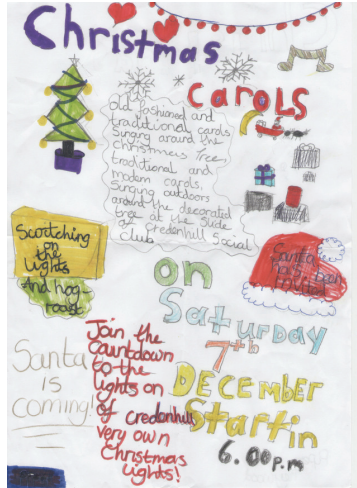 Christmas
CAROLS
Old fashioned and
traditional carols
Singing around the
christmas tree,
traditional and
modern carols.
Singing outdoors
around the decorated
tree at the side
of Credenhill Social
club
Scwitching
on
the
Lights
And hog
roast
Santa
has been
invited
on
Saturday
7th
DECEMBER
Startin
6.00p.m
Santa
is
coming!
Join the
countdown
to the
lights on
of credenhills
very own
Christmas
lights!